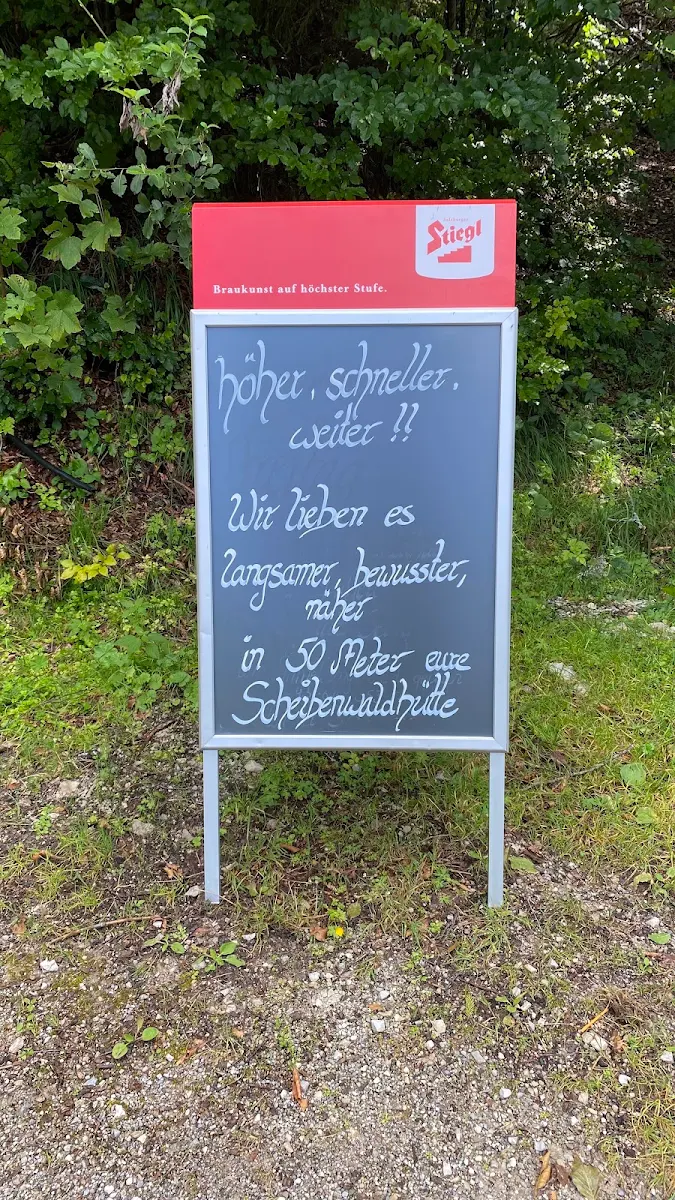 Stiegl
Braukunst auf höchster Stufe.
höher, schneller,
weiter !!
Wir lieben es
langsamer, bewusster,
näher
in 50 Meter eure
Scheibenwaldhütte